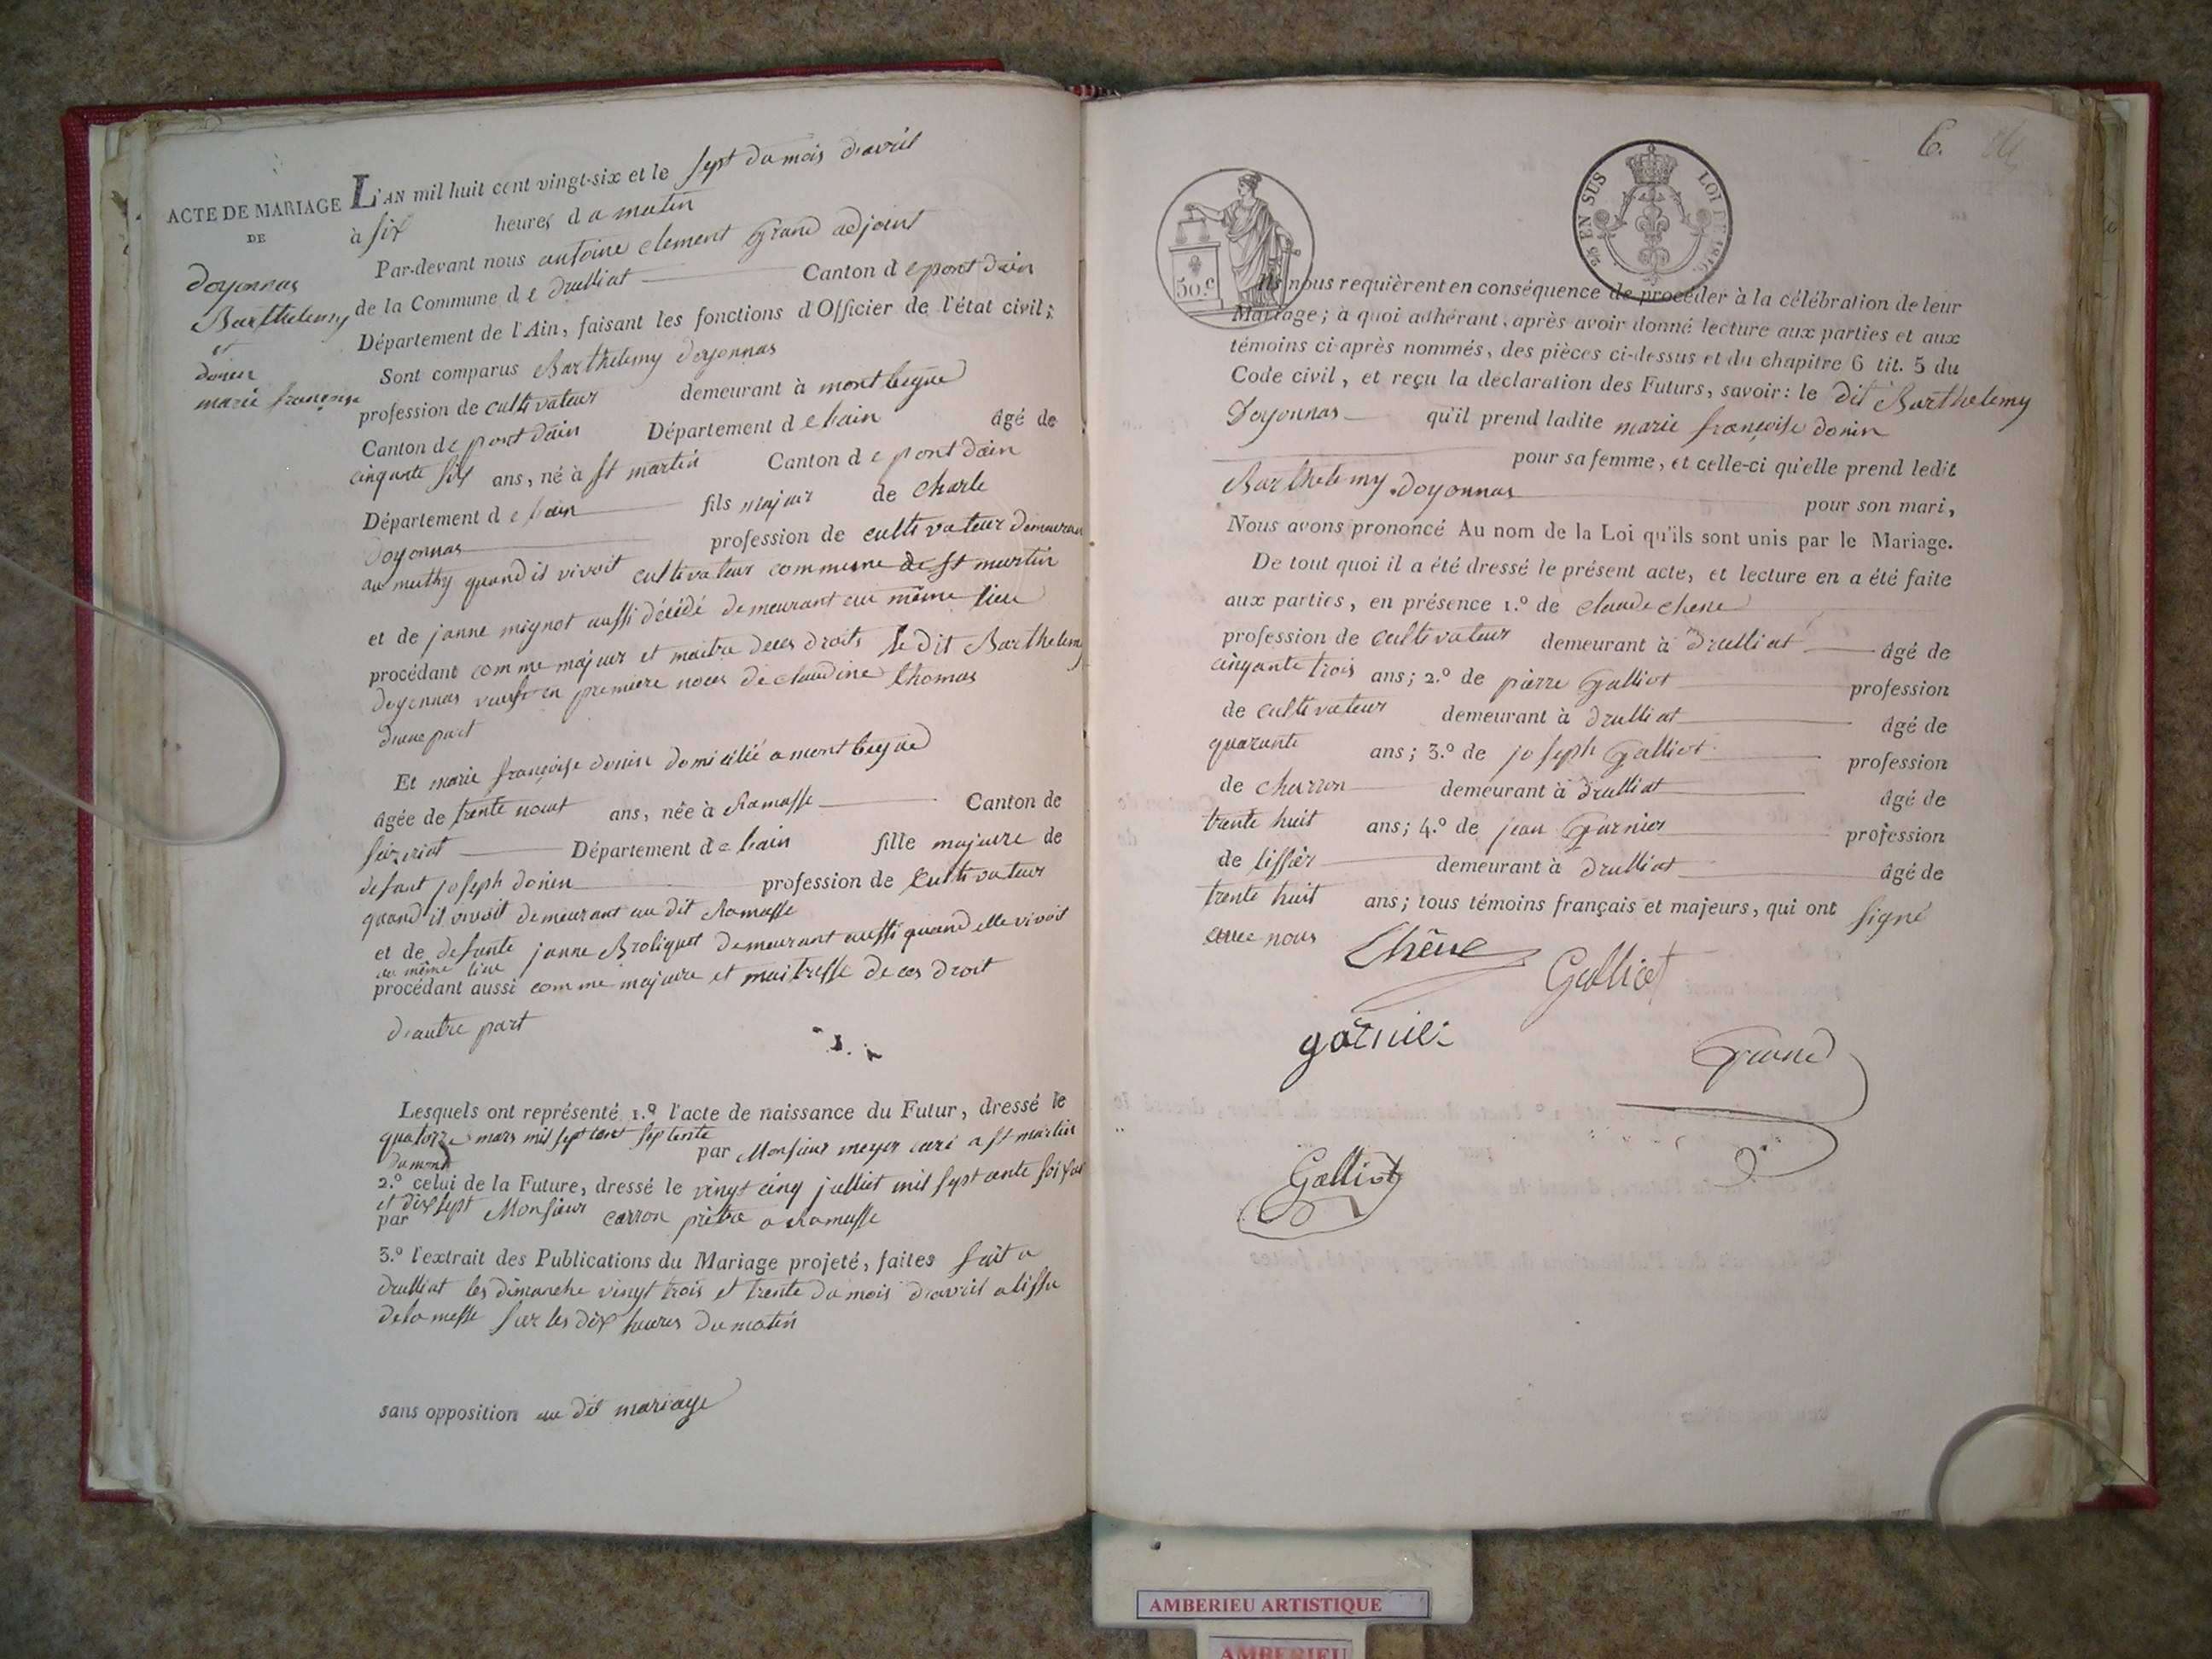 ACTE DE MARIAGE
DE
Doyonnas
Barthelemy
et
donin
marie françoise
L'AN mil huit cent vingt-six et le sept du mois d'avril
à six heures du matin
Par-devant nous antoine clement Grand adjoint
de la Commune de druilliat Canton de pont dain
Département de l'Ain, faisant les fonctions d'Officier de l'état civil;
Sont comparus Barthelemy doyonnas
profession de cultivateur demeurant à mont begue
Canton de pont dain Département de lain âgé de
cinquante six ans, né à st martin Canton de pont dain
Département de lain fils majeur de charle
Doyonnas profession de cultivateur demeuran
au muthy quand il vivoit cultivateur commune de st martin
et de janne mignot aussi décédé demeurant au même lieu
procédant comme majeur et maitre de ces droits le dit Barthelemy
doyonnas veuf en premiere noces de claudine thomas
dune part
Et marie françoise donin domicilié a mont begue
âgée de trente neuf ans, née à Ramasse Canton de
seizeriat Département de lain fille majeure de
defunt joseph donin profession de cultivateur
quand il vivoit demeurant au dit Ramasse
et de defunte janne Broliquet demeurant aussi quand elle vivoit
au même lieu
procédant aussi comme majeure et maitresse de ces droit
d'autre part
Lesquels ont représenté 1.º l'acte de naissance du Futur, dressé le
quatorze mars mil sept cent septente par Monsieur meyer curé a st martin
du mont
2.º celui de la Future, dressé le vingt cinq julliet mil sept cente soixan
et dix sept
par Monsieur carron prêtre a Ramasse
3.º l'extrait des Publications du Mariage projeté, faites fait a
druilliat les dimanche vingt trois et trente du mois d'avril a lissu
de la messe sur les dix heures du matin
sans opposition au dit mariage
6.
50.C
25 EN SUS LOI DE 1816
Ils nous requièrent en conséquence de procéder à la célébration de leur
Mariage; à quoi adhérant, après avoir donné lecture aux parties et aux
témoins ci-après nommés, des pièces ci-dessus et du chapitre 6 tit. 5 du
Code civil, et reçu la déclaration des Futurs, savoir: le dit Barthelemy
Doyonnas qu'il prend ladite marie françoise donin
pour sa femme, et celle-ci qu'elle prend ledit
Barthelemy doyonnas pour son mari,
Nous avons prononcé Au nom de la Loi qu'ils sont unis par le Mariage.
De tout quoi il a été dressé le présent acte, et lecture en a été faite
aux parties, en présence 1.º de claude chene
profession de cultivateur demeurant à druilliat âgé de
cinquante trois ans; 2.º de pierre Galliot profession
de cultivateur demeurant à druilliat âgé de
quarante ans; 3.º de joseph Galliot profession
de charron demeurant à druilliat âgé de
trente huit ans; 4.º de jean Garnier profession
de tissier demeurant à druilliat âgé de
trente huit ans; tous témoins français et majeurs, qui ont signé
avec nous
Chêne
Galliot
garnier
Grand
Galliot
AMBERIEU ARTISTIQUE
AMBERIEU